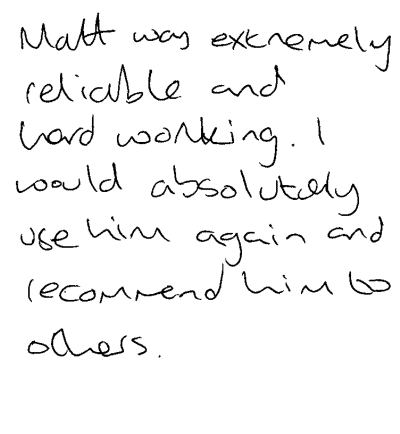 Matt was extremely
reliable and
hard working. I
would absolutely
use him again and
recommend him to
others.